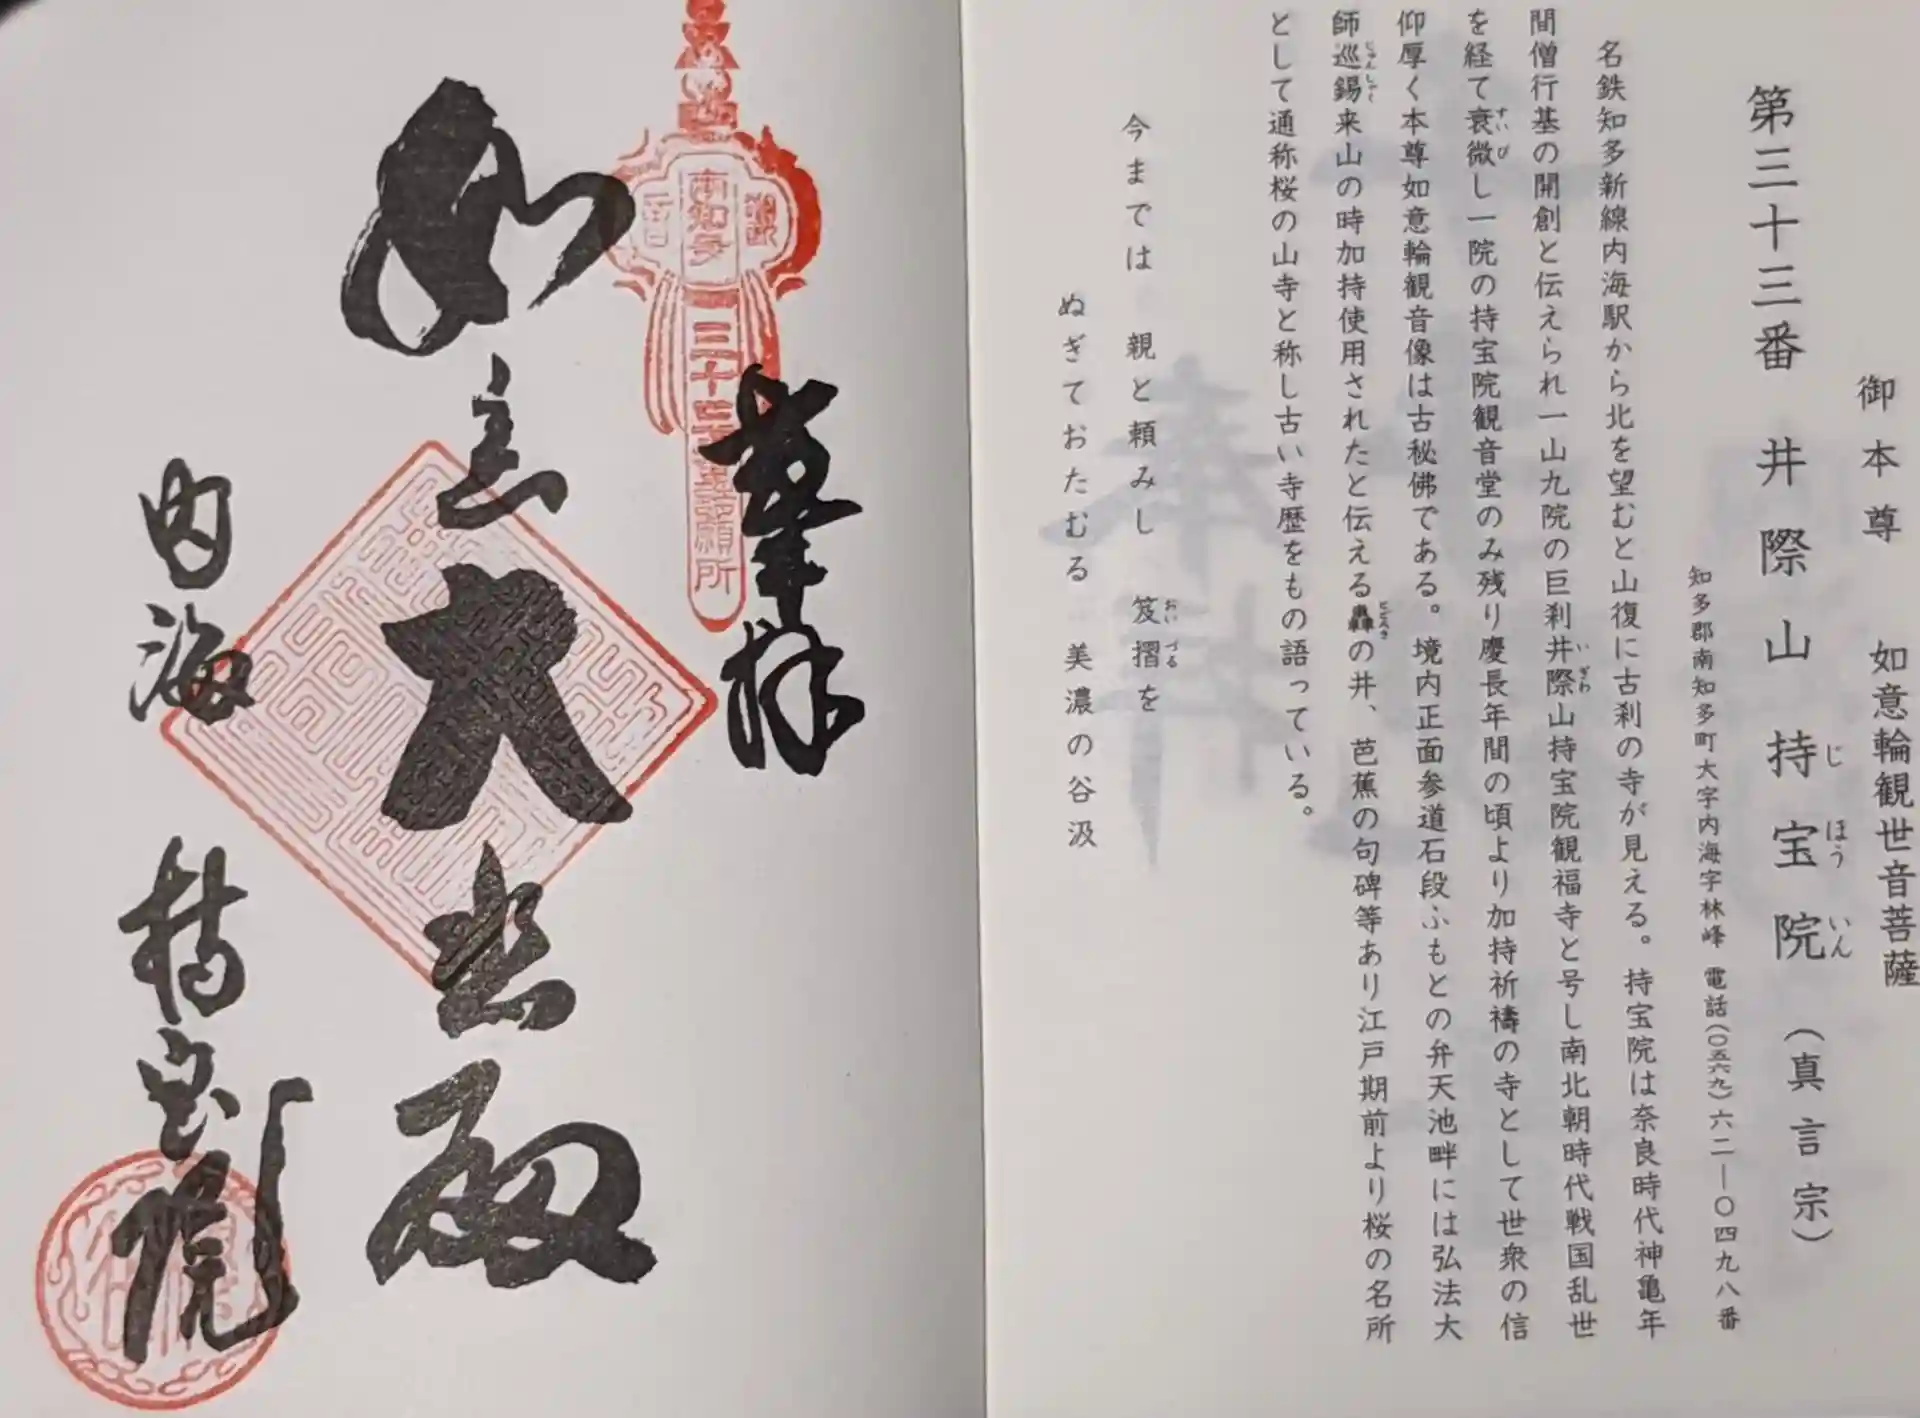 御本尊 如意輪観世音菩薩
第三十三番 井際山 持宝院 (真言宗)
じ ほう いん
知多郡南知多町大字内海字林峰 電話(〇五六九)六二―〇四九八番
名鉄知多新線内海駅から北を望むと山復に古刹の寺が見える。持宝院は奈良時代神亀年
間僧行基の開創と伝えられ一山九院の巨刹井際山持宝院観福寺と号し南北朝時代戦国乱世
いぎわ
を経て衰微し一院の持宝院観音堂のみ残り慶長年間の頃より加持祈禱の寺として世衆の信
すいび
仰厚く本尊如意輪観音像は古秘佛である。境内正面参道石段ふもとの弁天池畔には弘法大
師巡錫来山の時加持使用されたと伝える轟の井、芭蕉の句碑等あり江戸期前より桜の名所
じゅんしゃく
として通称桜の山寺と称し古い寺歴をもの語っている。
今までは 親と頼みし 笈摺を
おいづる
ぬぎておたむる 美濃の谷汲
奉拝
南知多
三十三
願所
如意
大悲殿
内海 持宝院